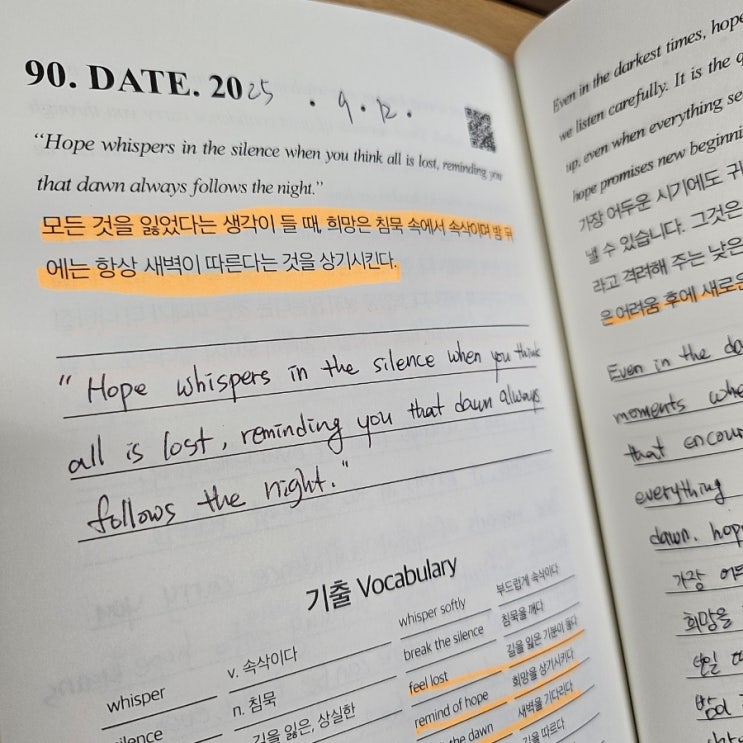 90. DATE. 2025 . 9 . 12 .
“Hope whispers in the silence when you think all is lost, reminding you
that dawn always follows the night.”
모든 것을 잃었다는 생각이 들 때, 희망은 침묵 속에서 속삭이며 밤 뒤
에는 항상 새벽이 따른다는 것을 상기시킨다.
" Hope whispers in the silence when you think
all is lost, reminding you that dawn always
follows the night."
기출 Vocabulary
whisper
v. 속삭이다
whisper softly
부드럽게 속삭이다
n. 침묵
break the silence
침묵을 깨다
길을 잃은, 상실한
feel lost
길을 잃은 기분이 들다
remind of hope
희망을 상기시키다
the dawn
새벽을 기다리다
길을 따르다
Even in the darkest times, hope
we listen carefully. It is the
up, even when everything
hope promises new
가장 어두운 시기에도
낼 수 있습니다. 그것은
라고 격려해 주는 낮은
은 어려움 후에
Even in the
moments
that
everything
dawn. hope
가장
희망을